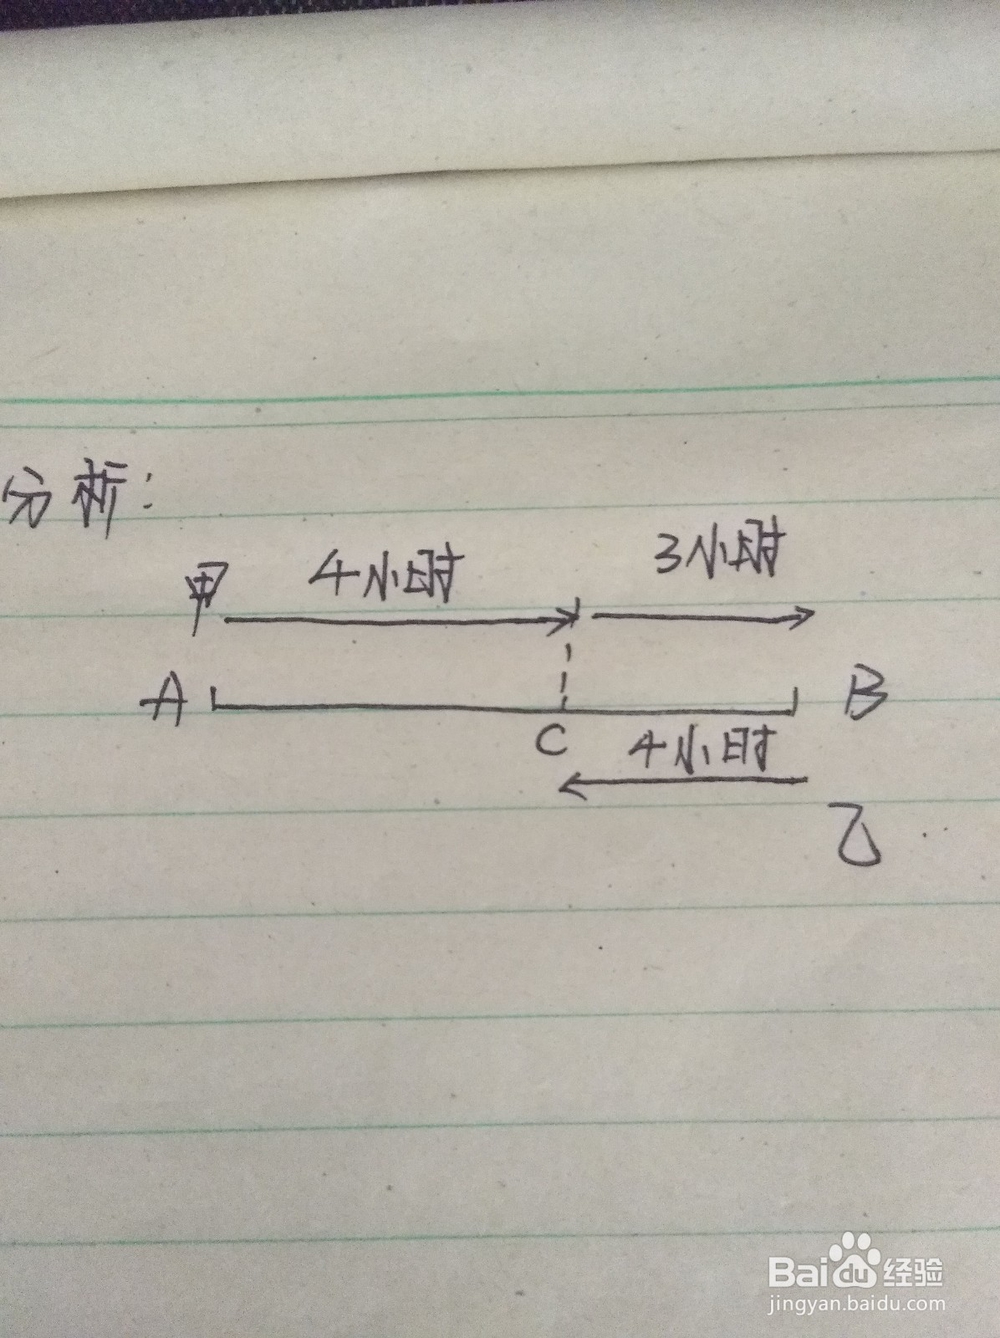 分析:
甲 4小时 3小时
A B
C 4小时
乙
Baidu 经验
jingyan.baidu.com